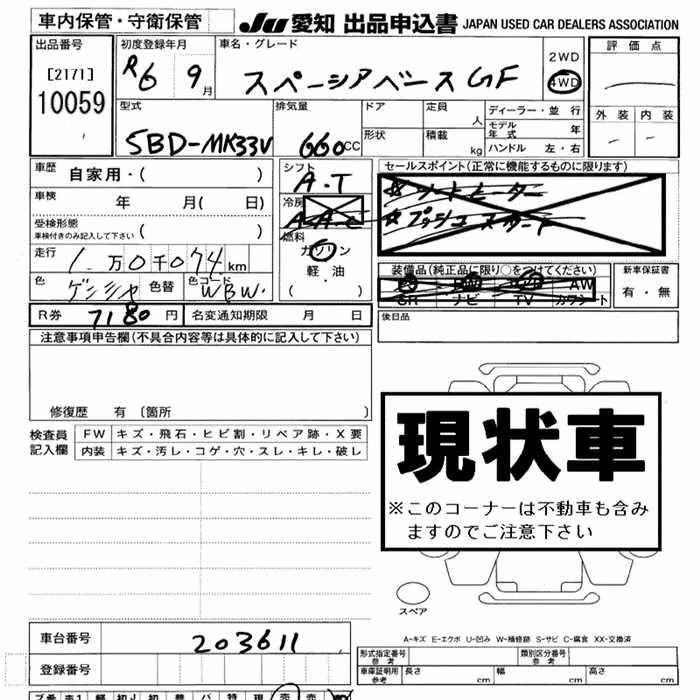 車内保管・守衛保管 JU 愛知 出品申込書 JAPAN USED CAR DEALERS ASSOCIATION
出品番号 [2171] 10059
初度登録年月 R6 9月
車名・グレード スペーシアベースGF
2WD 4WD
評価点
外装 内装
型式 5BD-MK33V
排気量 660cc
ドア 定員 人
形状 積載 kg
ディーラー・並行
モデル年式 年
ハンドル 左・右
車歴 自家用・( )
車検 年 月( 日)
受検形態 車検付きのみ記入して下さい ( )
走行 1万0千074km
色 ゲンシャ 色替 色コード WBW.
シフト A.T
冷房 AAC
燃料 ガソリン
軽・油
( ・ )
セールスポイント(正常に機能するものに限ります)
☆シートヒーター
☆プッシュスタート
装備品(純正品に限り○をつけてください)
AW
SR ナビ TV カワシート
新車保証書
有・無
R券 7180円 名変通知期限 月 日
後日品
注意事項申告欄(不具合内容等は具体的に記入して下さい)
修復歴 有〔箇所 〕
検査員記入欄
FW キズ・飛石・ヒビ割・リペア跡・X要
内装 キズ・汚レ・コゲ・穴・スレ・キレ・破レ
現状車
※このコーナーは不動車も含みますのでご注意下さい
スペア
A-キズ E-エクボ U-凹み W-補修跡 S-サビ C-腐食 XX-交換済
車台番号 203611
登録番号
形式指定番号 参考
類別区分番号 参考
車庫証明用 参考 長さ cm 幅 cm 高さ cm